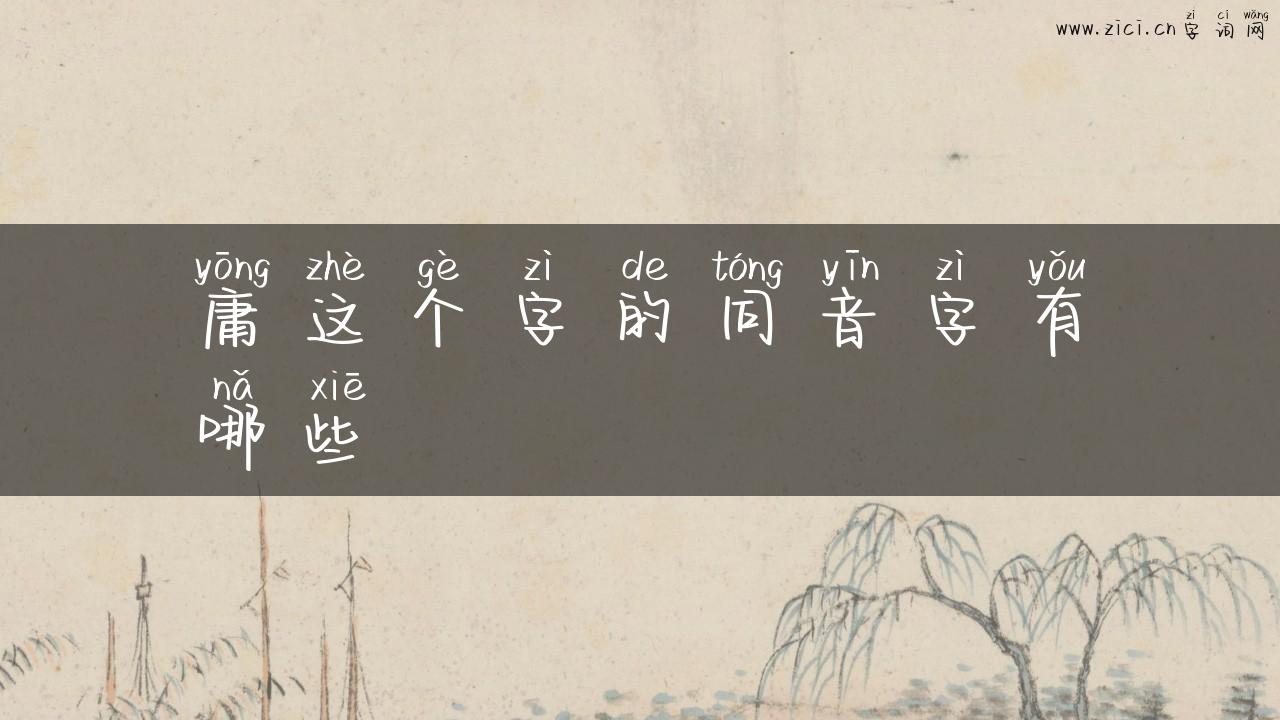 zì cí wǎng
www.zici.cn 字词网
yōng zhè gè zì de tóng yīn zì yǒu
庸这个字的同音字有
nǎ xiē
哪些